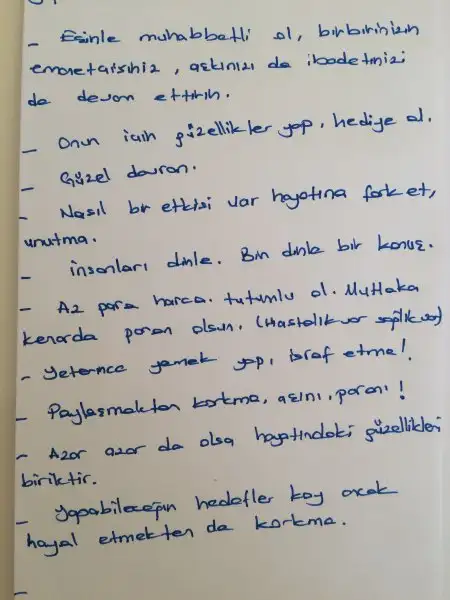 - Eşinle muhabbetli ol, birbirinizin
emanetçisiniz, aşkınızı da ibadetinizi
de devam ettirin.
- Onun için güzellikler yap, hediye al.
- Güzel davran.
- Nasıl bir etkisi var hayatına fark et,
unutma.
- İnsanları dinle. Bin dinle bir konuş.
- Az para harca. tutumlu ol. Mutlaka
kenarda paran olsun. (Hastalık var sağlık var)
- Yeterince yemek yap, israf etme!
- Paylaşmaktan korkma, aşını, paranı!
- Azar azar da olsa hayatındaki güzellikleri
biriktir.
- Yapabileceğin hedefler koy ancak
hayal etmekten de korkma.
-